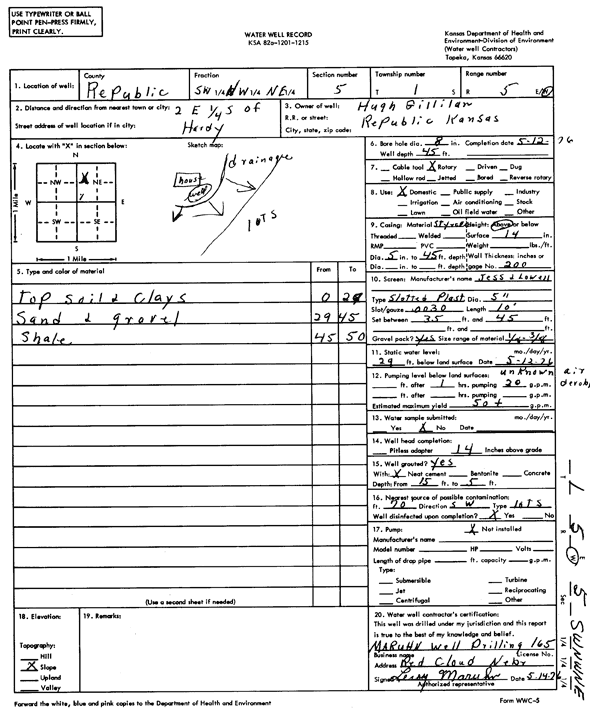 USE TYPEWRITER OR BALL
POINT PEN-PRESS FIRMLY,
PRINT CLEARLY.
WATER WELL RECORD
KSA 82a-1201-1215
Kansas Department of Health and
Environment-Division of Environment
(Water well Contractors)
Topeka, Kansas 66620
1. Location of well: County Republic Fraction SW 1/4 NW 1/4 NE 1/4 Section number 5 Township number T 1 S Range number R 5 E/W
2. Distance and direction from nearest town or city: 2 E 1/4 S of
Street address of well location if in city: Hardy
3. Owner of well: Hugh Gillilan
R.R. or street: Republic Kansas
City, state, zip code:
4. Locate with "X" in section below:
N
NW X NE
W E
SW SE
S
1 Mile
1 Mile
Sketch map:
drainage
house
well
lots
5. Type and color of material From To
Top Soil & Clays 0 29
Sand & gravel 29 45
Shale 45 50
(Use a second sheet if needed)
6. Bore hole dia. 8 in. Completion date 5-12-76
Well depth 45 ft.
7. Cable tool X Rotary Driven Dug
Hollow rod Jetted Bored Reverse rotary
8. Use: X Domestic Public supply Industry
Irrigation Air conditioning Stock
Lawn Oil field water Other
9. Casing: Material Styrene Height: Above or below
Threaded Welded Surface 14 in.
RMP PVC Weight lbs./ft.
Dia. 5 in. to 45 ft. depth Wall Thickness: inches or
Dia. in. to ft. depth gage No. 200
10. Screen: Manufacturer's name Jess & Lowell
Type Slotted Plast Dia. 5"
Slot/gauze .0030 Length 10'
Set between 35 ft. and 45 ft.
ft. and ft.
Gravel pack? Yes Size range of material 1/8-3/8
11. Static water level: mo./day/yr.
29 ft. below land surface Date 5-12-76
12. Pumping level below land surfaces: unknown air
ft. after 1 hrs. pumping 20 g.p.m.
ft. after hrs. pumping g.p.m.
Estimated maximum yield 50+ g.p.m.
13. Water sample submitted: mo./day/yr.
Yes X No Date
14. Well head completion:
Pitless adapter 14 Inches above grade
15. Well grouted? Yes
With: X Neat cement Bentonite Concrete
Depth: From 15 ft. to 5 ft.
16. Nearest source of possible contamination:
ft. 70 Direction SW Type lots
Well disinfected upon completion? X Yes No
17. Pump: X Not installed
Manufacturer's name
Model number HP Volts
Length of drop pipe ft. capacity g.p.m.
Type:
Submersible Turbine
Jet Reciprocating
Centrifugal Other
18. Elevation:
Topography:
Hill
X Slope
Upland
Valley
19. Remarks:
20. Water well contractor's certification:
This well was drilled under my jurisdiction and this report
is true to the best of my knowledge and belief.
MARUHN Well Drilling 165
Business name License No.
Address Red Cloud Nebr
Signed Leroy Maruhn Date 5-14-76
Authorized representative
T 1 S R 5 E W Sec 5 SW 1/4 NW 1/4 NE 1/4
Forward the white, blue and pink copies to the Department of Health and Environment
Form WWC-5